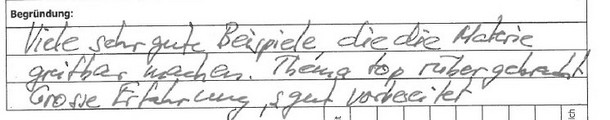 Begründung:
Viele sehr gute Beispiele die die Materie
greifbar machen. Thema top rübergebracht
Grosse Erfahrung, sgut vorbereitet